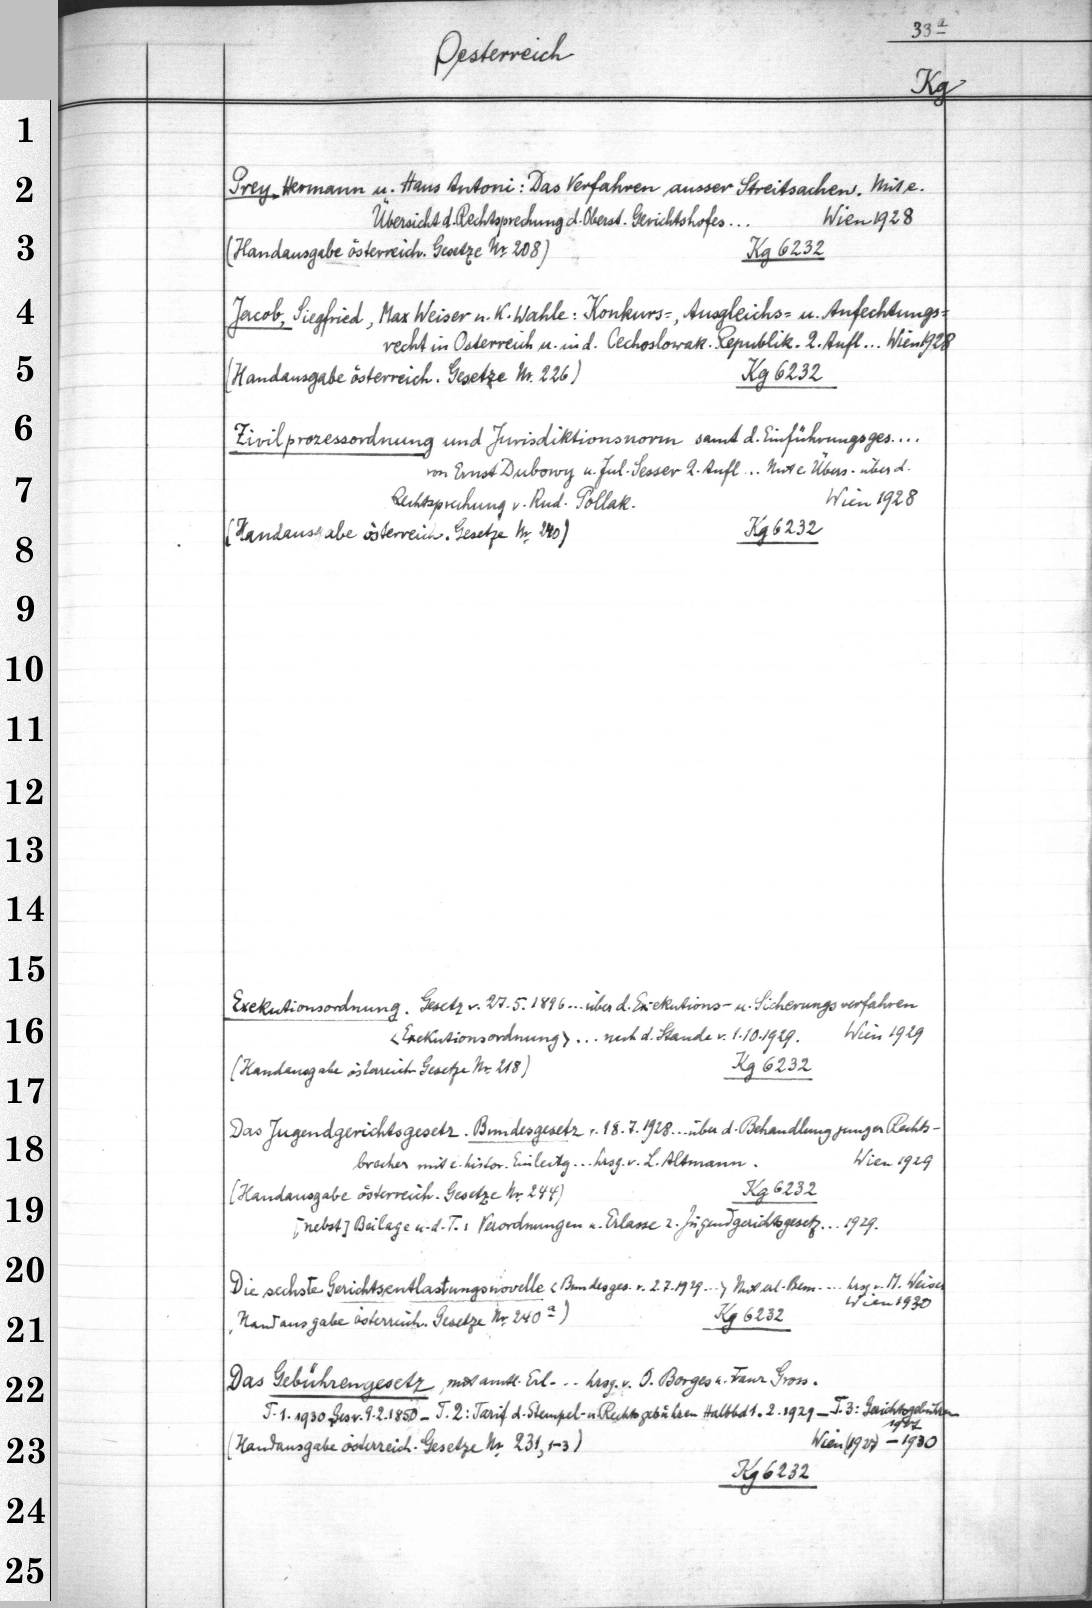 33a
Oesterreich
Kg
1
2
3
4
5
6
7
8
9
10
11
12
13
14
15
16
17
18
19
20
21
22
23
24
25
Prey, Hermann u. Hans Antoni: Das Verfahren ausser Streitsachen. Mit e.
Übersicht d. Rechtsprechung d. Oberst. Gerichtshofes... Wien 1928
(Handausgabe österreich. Gesetze Nr. 208) Kg 6232
Jacob, Siegfried, Max Weiser u. K. Wahle: Konkurs=, Ausgleichs= u. Anfechtungs=
recht in Österreich u. in d. Cechoslowak. Republik. 2. Aufl... Wien 1928
(Handausgabe österreich. Gesetze Nr. 226) Kg 6232
Zivilprozessordnung und Jurisdiktionsnorm samt d. Einführungsges....
von Ernst Dubowy u. Jul. Sesser 2. Aufl... Mit e. Übers. über d.
Rechtsprechung v. Rud. Pollak. Wien 1928
(Handausgabe österreich. Gesetze Nr. 240) Kg 6232
Exekutionsordnung. Gesetz v. 27.5.1896... über d. Exekutions- u. Sicherungsverfahren
<Exekutionsordnung>... nach d. Stande v. 1.10.1929. Wien 1929
(Handausgabe österreich Gesetze Nr. 218) Kg 6232
Das Jugendgerichtsgesetz. Bundesgesetz v. 18.7.1928... über d. Behandlung junger Rechts-
brecher mit e. histor. Einleitg... hrsg. v. L. Altmann. Wien 1929
(Handausgabe österreich. Gesetze Nr. 244) Kg 6232
[nebst] Beilage u. d. T.: Verordnungen u. Erlasse z. Jugendgerichtsgesetz... 1929.
Die sechste Gerichtsentlastungsnovelle <Bundesges. v. 2.7.1929...> Mit erl. Bem.... hrsg. v. M. Weiser
Wien 1930
(Handausgabe österreich. Gesetze Nr. 240a) Kg 6232
Das Gebührengesetz, mit amtl. Erl... hrsg. v. O. Borges u. Franz Gross.
T. 1. 1930 Ges v. 9.2.1850 – T. 2: Tarif d. Stempel- u Rechtsgebühren Halbbd 1. 2. 1929 – T. 3: Gerichtsgebühren
1927
(Handausgabe österreich. Gesetze Nr. 231, 1-3) Wien (1927) – 1930
Kg 6232